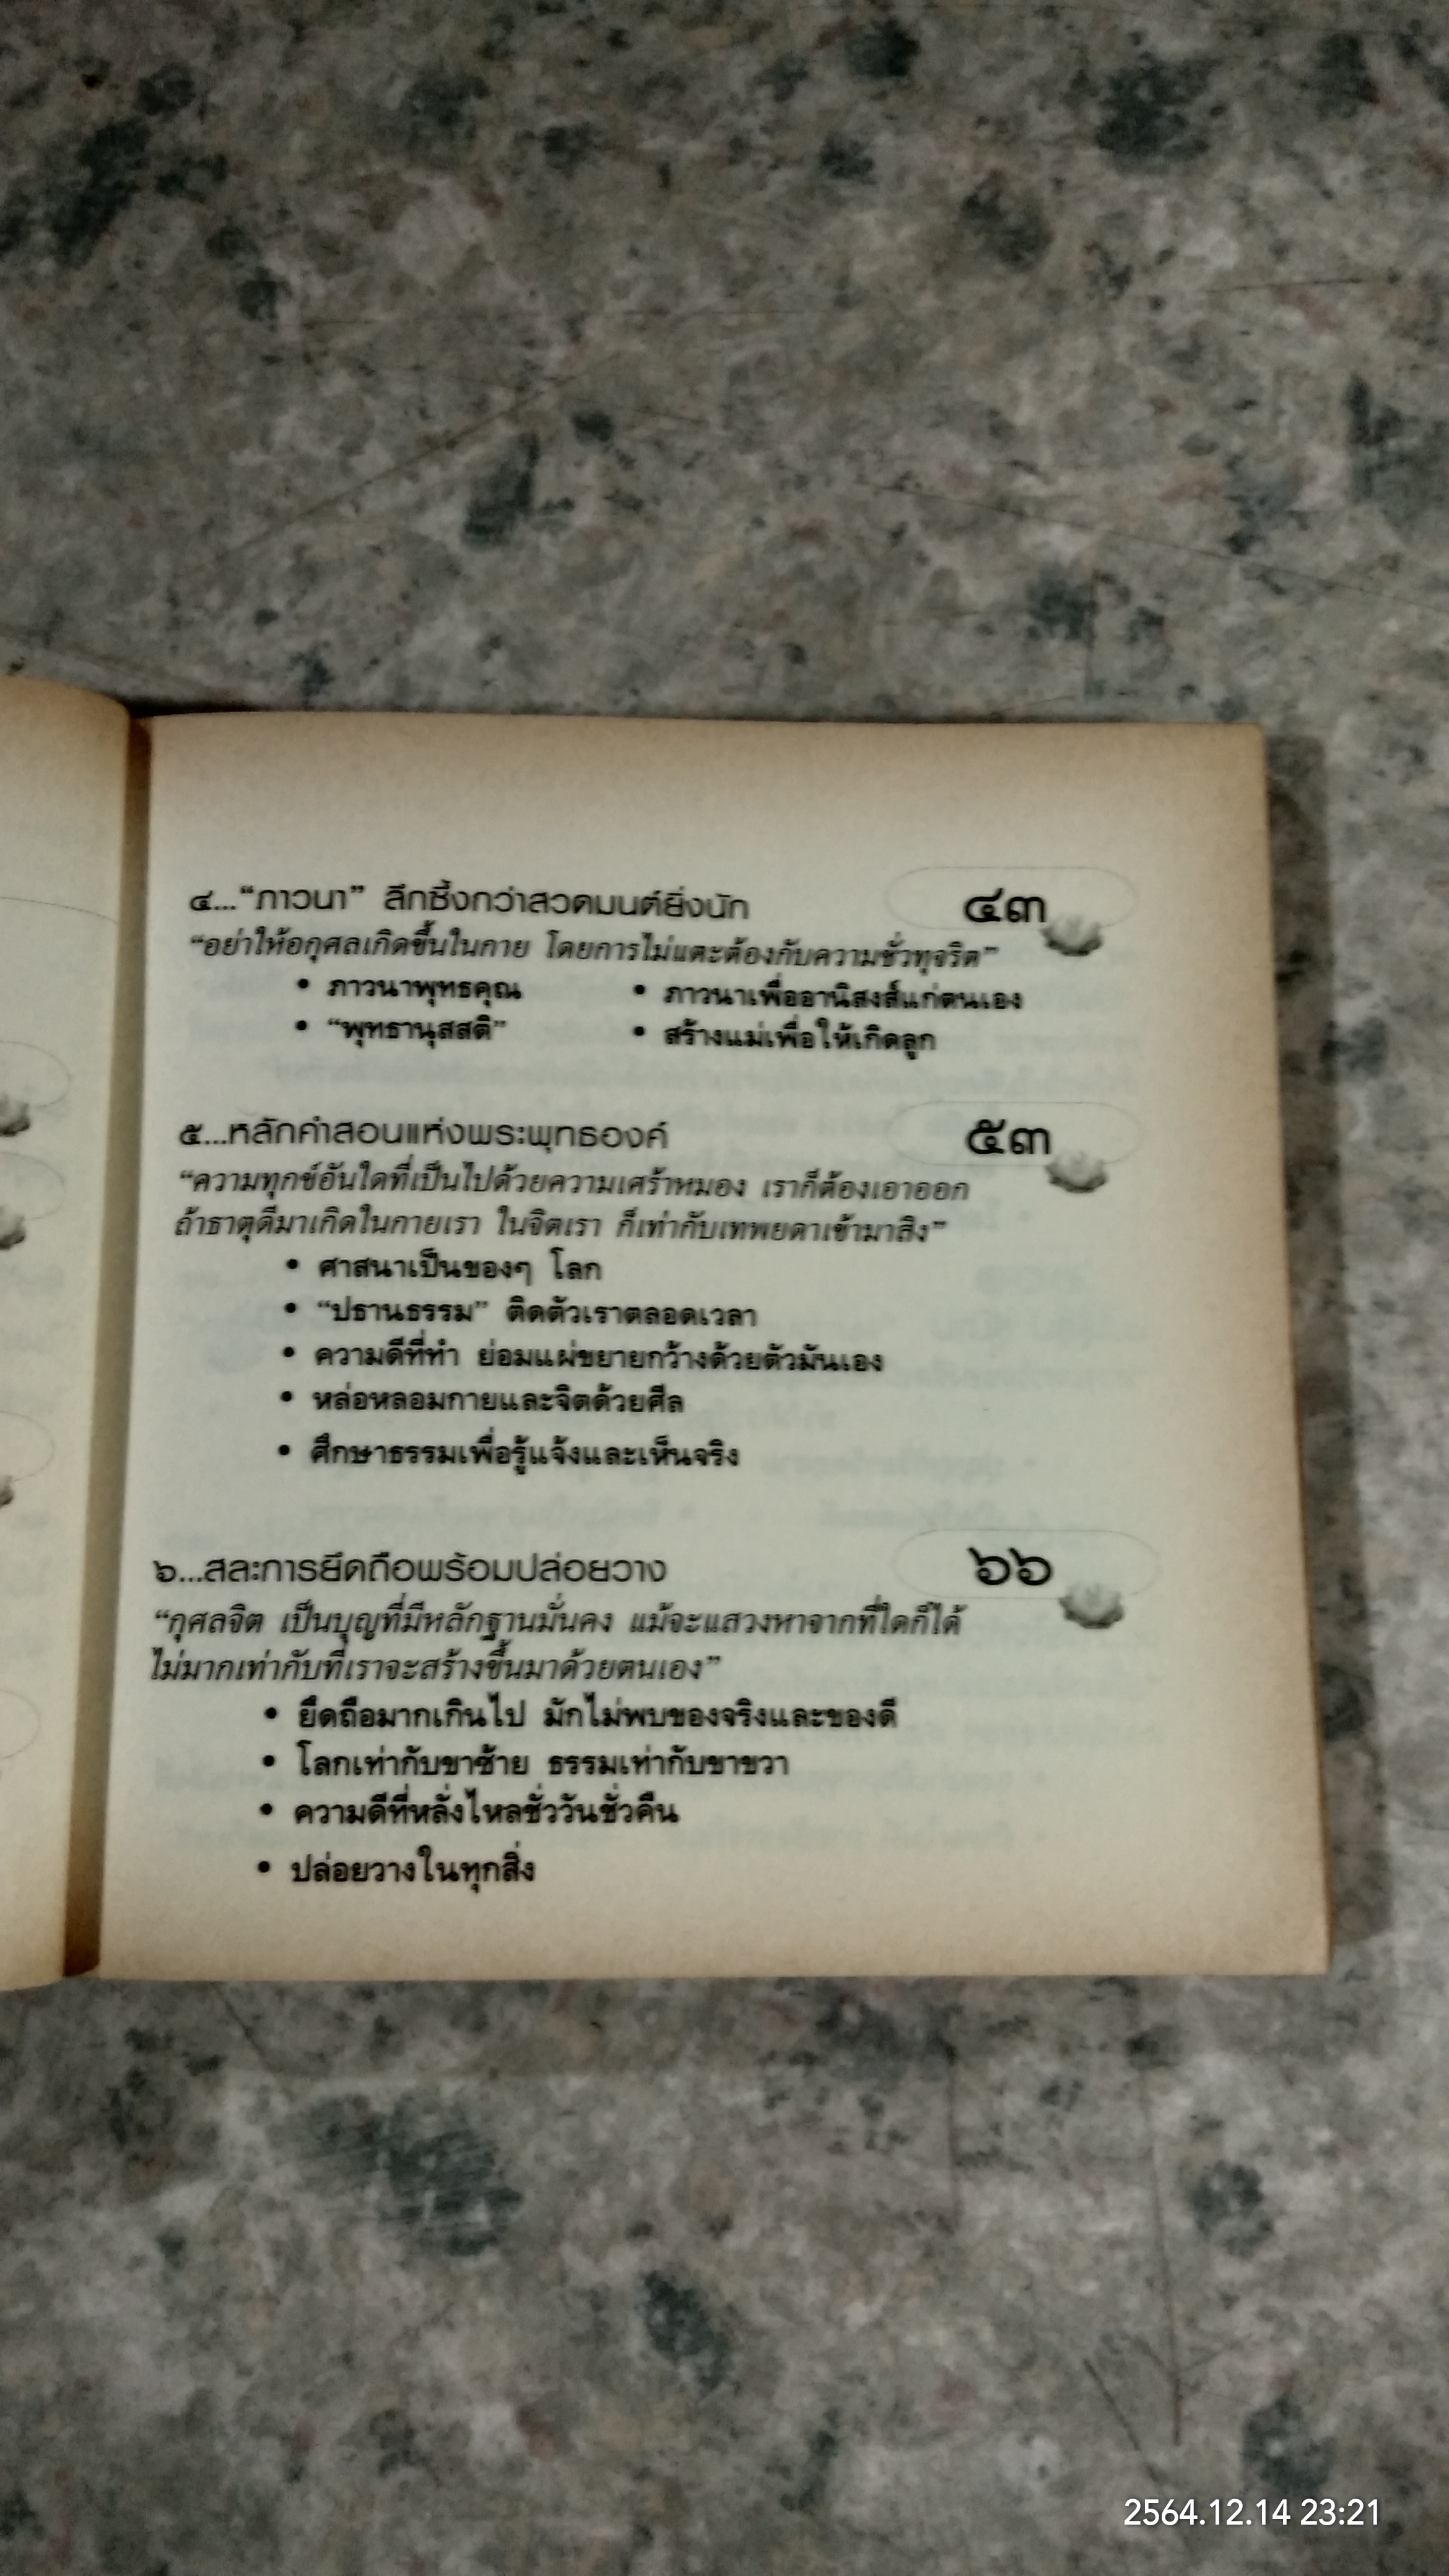 ๔..."ภาวนา" ลึกซึ้งกว่าสวดมนต์ยิ่งนัก ๔๓
"อย่าให้อกุศลเกิดขึ้นในกาย โดยการไม่แตะต้องกับความชั่วทุจริต"
• ภาวนาพุทธคุณ • ภาวนาเพื่ออานิสงส์แก่ตนเอง
• "พุทธานุสสติ" • สร้างแม่เพื่อให้เกิดลูก
๕...หลักคำสอนแห่งพระพุทธองค์ ๕๓
"ความทุกข์อันใดที่เป็นไปด้วยความเศร้าหมอง เราก็ต้องเอาออก
ถ้าธาตุดีมาเกิดในกายเรา ในจิตเรา ก็เท่ากับเทพยดาเข้ามาสิง"
• ศาสนาเป็นของๆ โลก
• "ปธานธรรม" ติดตัวเราตลอดเวลา
• ความดีที่ทำ ย่อมแผ่ขยายกว้างด้วยตัวมันเอง
• หล่อหลอมกายและจิตด้วยศีล
• ศึกษาธรรมเพื่อรู้แจ้งและเห็นจริง
๖...สละการยึดถือพร้อมปล่อยวาง ๖๖
"กุศลจิต เป็นบุญที่มีหลักฐานมั่นคง แม้จะแสวงหาจากที่ใดก็ได้
ไม่มากเท่ากับที่เราจะสร้างขึ้นมาด้วยตนเอง"
• ยึดถือมากเกินไป มักไม่พบของจริงและของดี
• โลกเท่ากับขาซ้าย ธรรมเท่ากับขาขวา
• ความดีที่หลั่งไหลชั่ววันชั่วคืน
• ปล่อยวางในทุกสิ่ง
2564.12.14 23:21